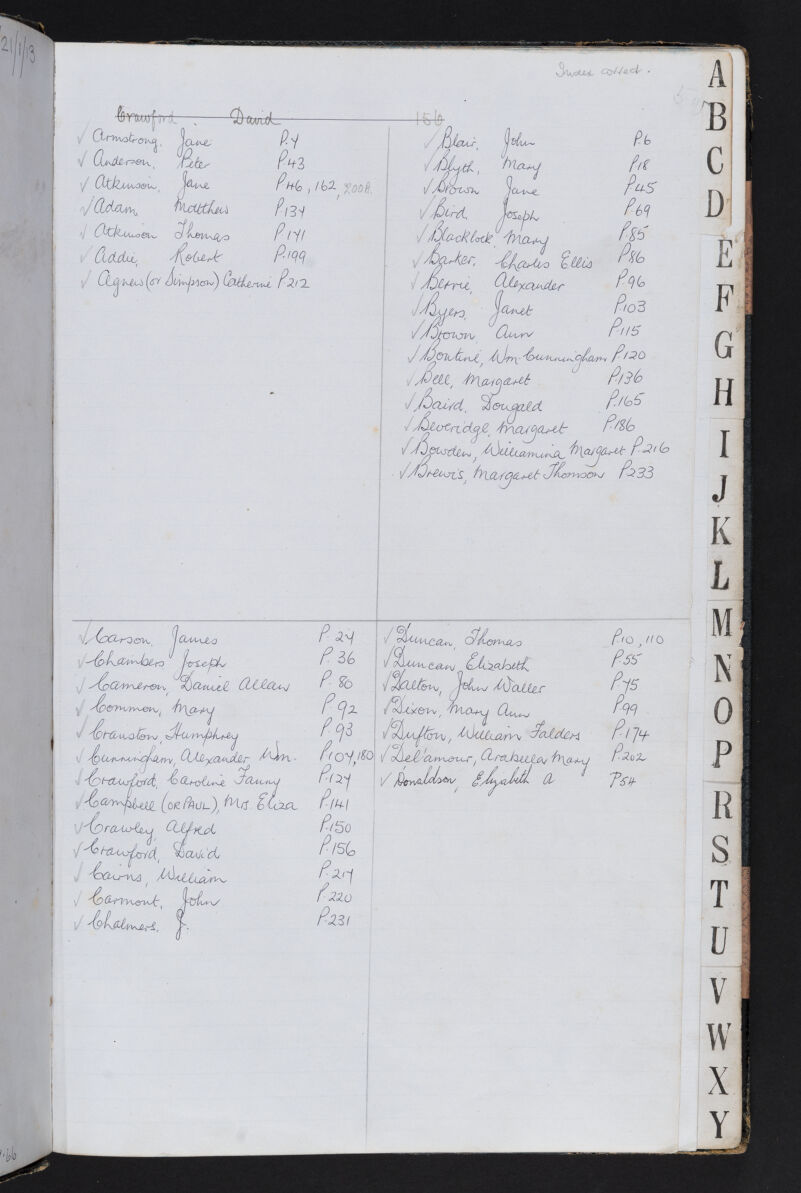 21/1/13
Index correct.
Crawford David 156
✓ Armstrong, Jane P.4
✓ Anderson, Peter P43
✓ Atkinson, Jane P46, 162, 200B.
✓ Adam, Matthew P134
✓ Atkinson Thomas P.171
✓ Addie, Robert P.199
✓ Agnew (or Simpson) Catherine P212
✓ Blair, John P.6
✓ Blyth, Mary P18
✓ Brown Jane P45
✓ Bird, Joseph P.69
✓ Blacklock, Mary P85
✓ Barker, Charles Ellis P86
✓ Berrie, Alexander P.96
✓ Byers, Janet P103
✓ Brown, Ann P.115
✓ Bontine, Wm Cunningham P120
✓ Bell, Margaret P136
✓ Baird, Dougald P.165
✓ Beveridge, Margaret P.186
✓ Bowden, Williamina Margaret P.216
✓ Brewis, Margaret Thomson P233
✓ Carson, James P. 24
✓ Chambers Joseph P. 36
✓ Cameron, Daniel Allan P. 80
✓ Common, Mary P.92
✓ Cranston, Humphrey P.93
✓ Cunningham, Alexander Wm. P104, 180
✓ Crawford, Caroline Fanny P.124
✓ Campbell (OR PAUL), Mrs Eliza P.141
✓ Crawley, Alfred P.150
✓ Crawford, David P.156
✓ Cairns, William P.214
✓ Carmont, John P.220
✓ Chalmers, J. P.231
✓ Duncan, Thomas P.10, 110
✓ Duncan, Elizabeth P.55
✓ Dalton, John Waller P.75
✓ Dixon, Mary Ann P.99
✓ Dufton, William Falders P.174
✓ Del'amour, Arabella Mary P.202
✓ Donaldson, Elizabeth A P54
A
B
C
D
E
F
G
H
I
J
K
L
M
N
O
P
R
S
T
U
V
W
X
Y